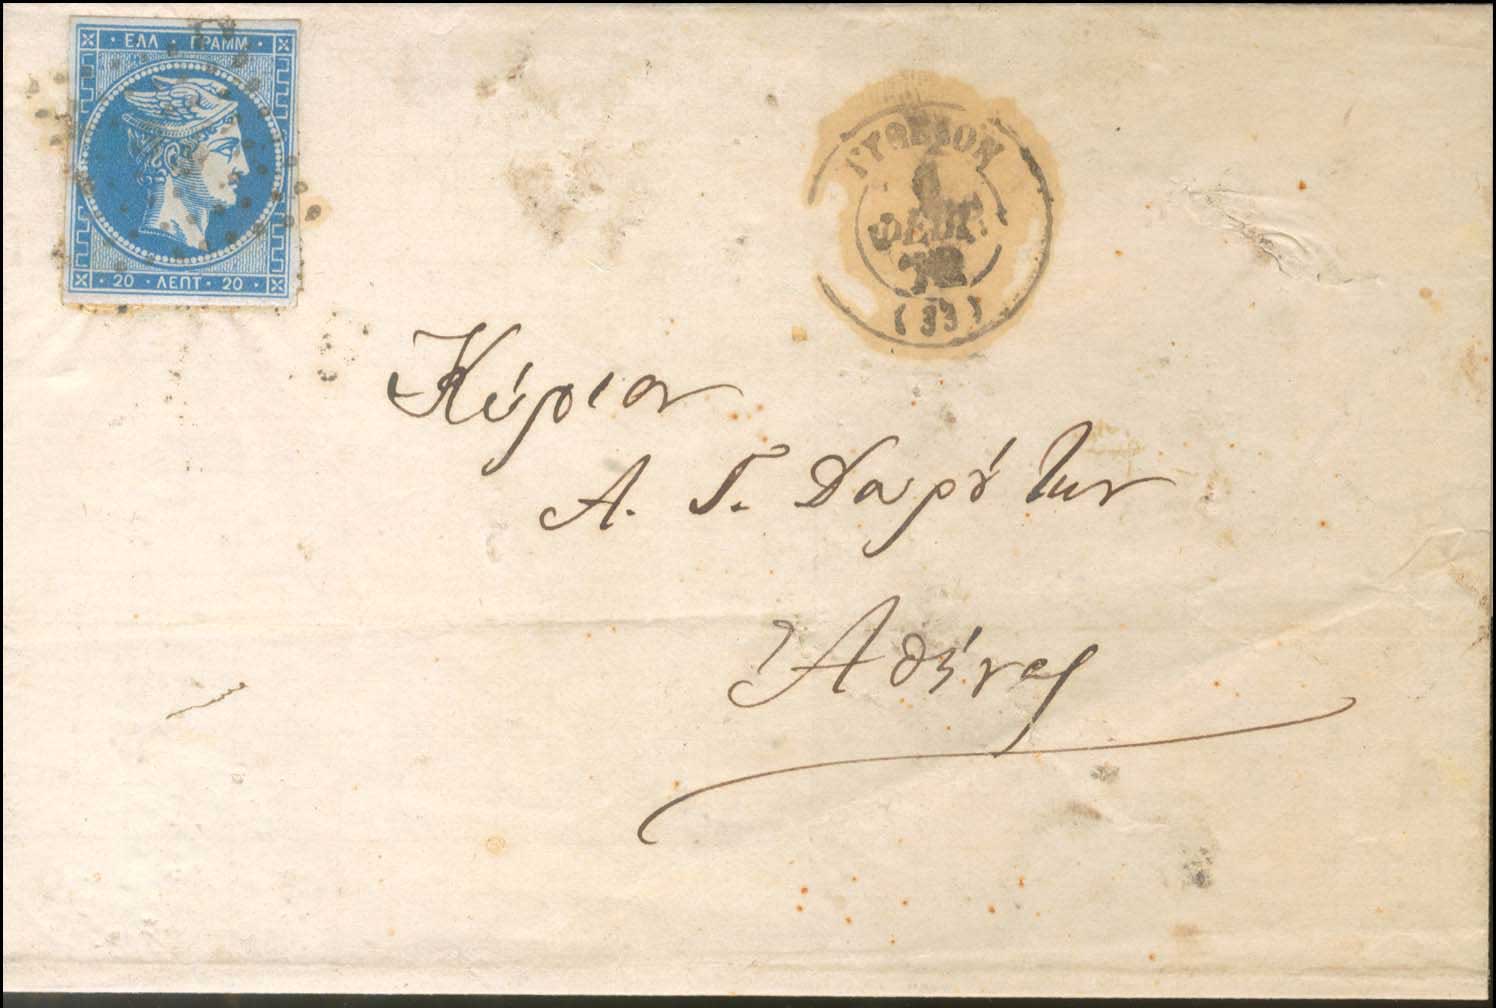 ΕΛΛ ΓΡΑΜΜ
20 ΛΕΠΤ 20
ΓΥΘΕΙΟΝ
ΦΕΒΡ.
72
(33)
Κύριον
Α. Γ.
Ἀθήνας